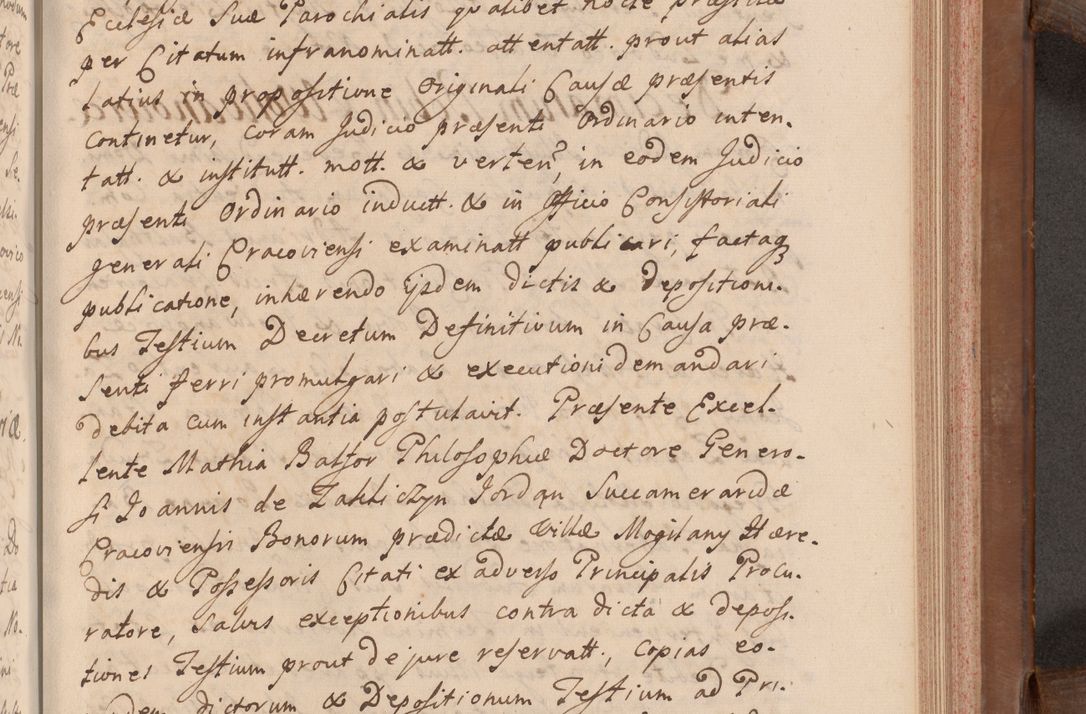 Ecclesiæ Suæ Parochialis qualibet nocte præstitæ
per Citatum infranominatt. attentatt. prout alias
latius in propositione Originali Causæ præsentis
continetur, coram Judicio præsenti Ordinario inten-
tatt. & institutt. mott. & verten?, in eodem Judicio
præsenti Ordinario inductt. & in Officio Consistoriali
generali Cracoviensi examinatt publicari, factaq3
publicatione, inhærendo ijsdem dictis & depositioni-
bus Testium Decretum Definitivum in Causa præ-
senti ferri promulgari & executioni demandari
debita cum instantia postulavit. Præsente Excel-
lente Mathia Balsor Philosophiæ Doctore Genero-
si Joannis de Zakliczyn Jordan Succameraridæ
Cracoviensis Bonorum prædictæ Villæ Mogilany Hære-
dis & Possessoris Citati ex adverso Principalis Procu-
ratore, Salvis exceptionibus contra dicta & deposi-
tiones Testium prout de jure reservatt., copias eo-
dem dictorum & Depositionum Testium ad Pri-